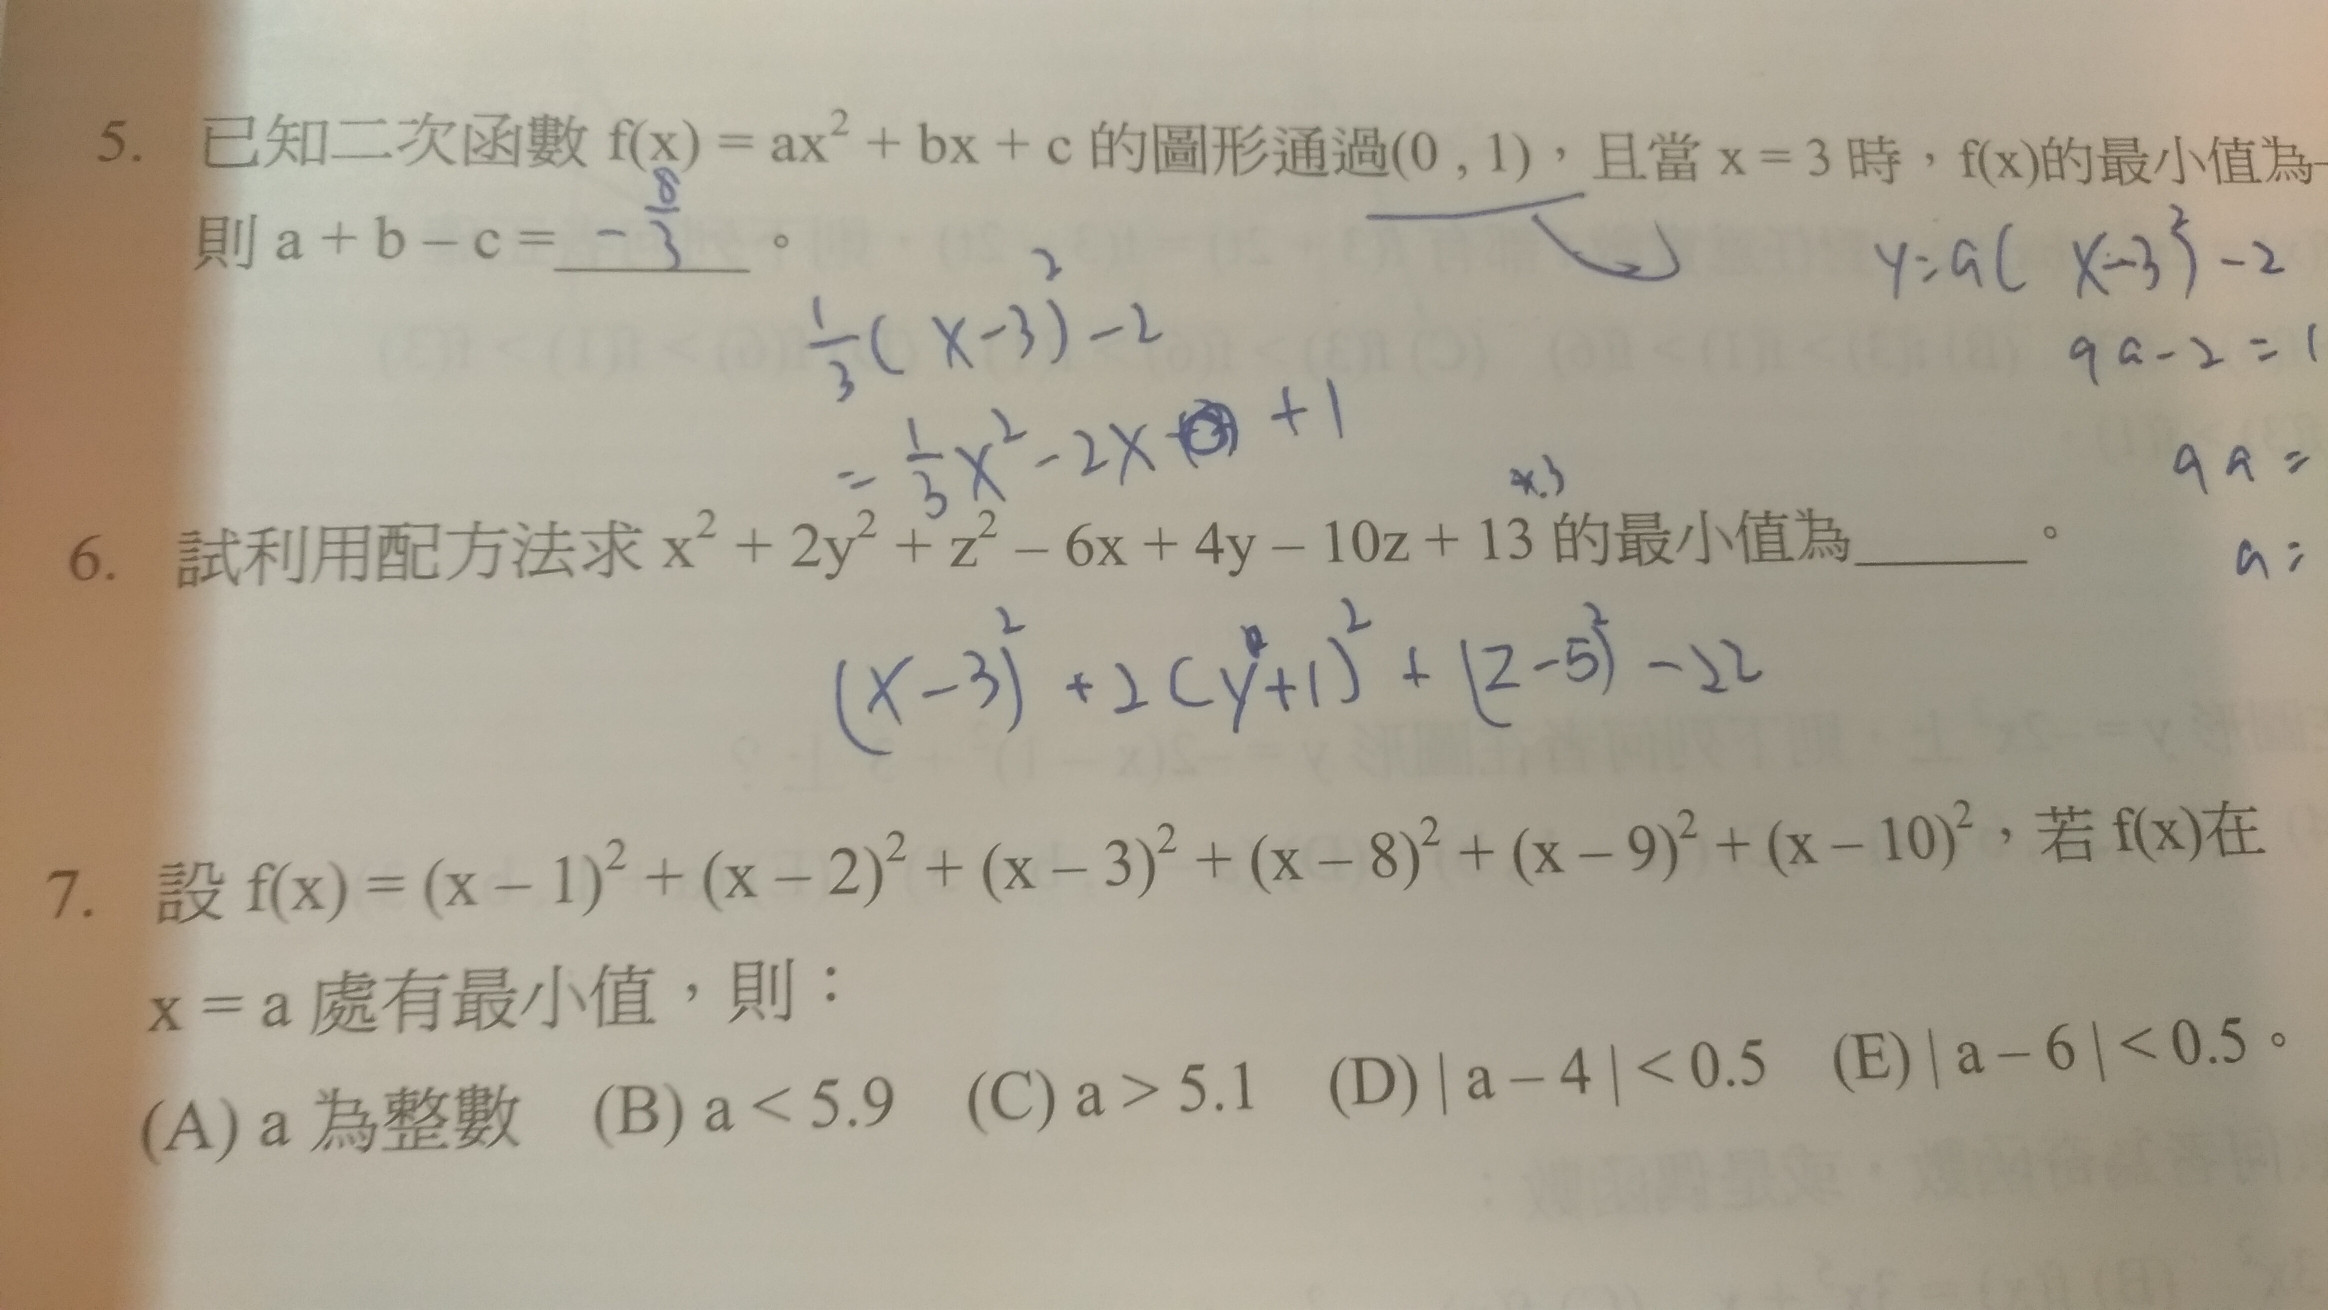 5. 已知二次函數 f(x) = ax² + bx + c 的圖形通過(0 , 1),且當 x = 3 時,f(x)的最小值為–
則 a + b – c = -8/3 。
y=a(x-3)²-2
1/3(x-3)²-2
9a-2=1
=1/3x²-2x +1
9a=
a=
6. 試利用配方法求 x² + 2y² + z² – 6x + 4y – 10z + 13 的最小值為______。
(x-3)²+2(y+1)²+(z-5)²-22
7. 設 f(x) = (x – 1)² + (x – 2)² + (x – 3)² + (x – 8)² + (x – 9)² + (x – 10)²,若 f(x)在
x = a 處有最小值,則:
(A) a 為整數 (B) a < 5.9 (C) a > 5.1 (D) | a – 4 | < 0.5 (E) | a – 6 | < 0.5。